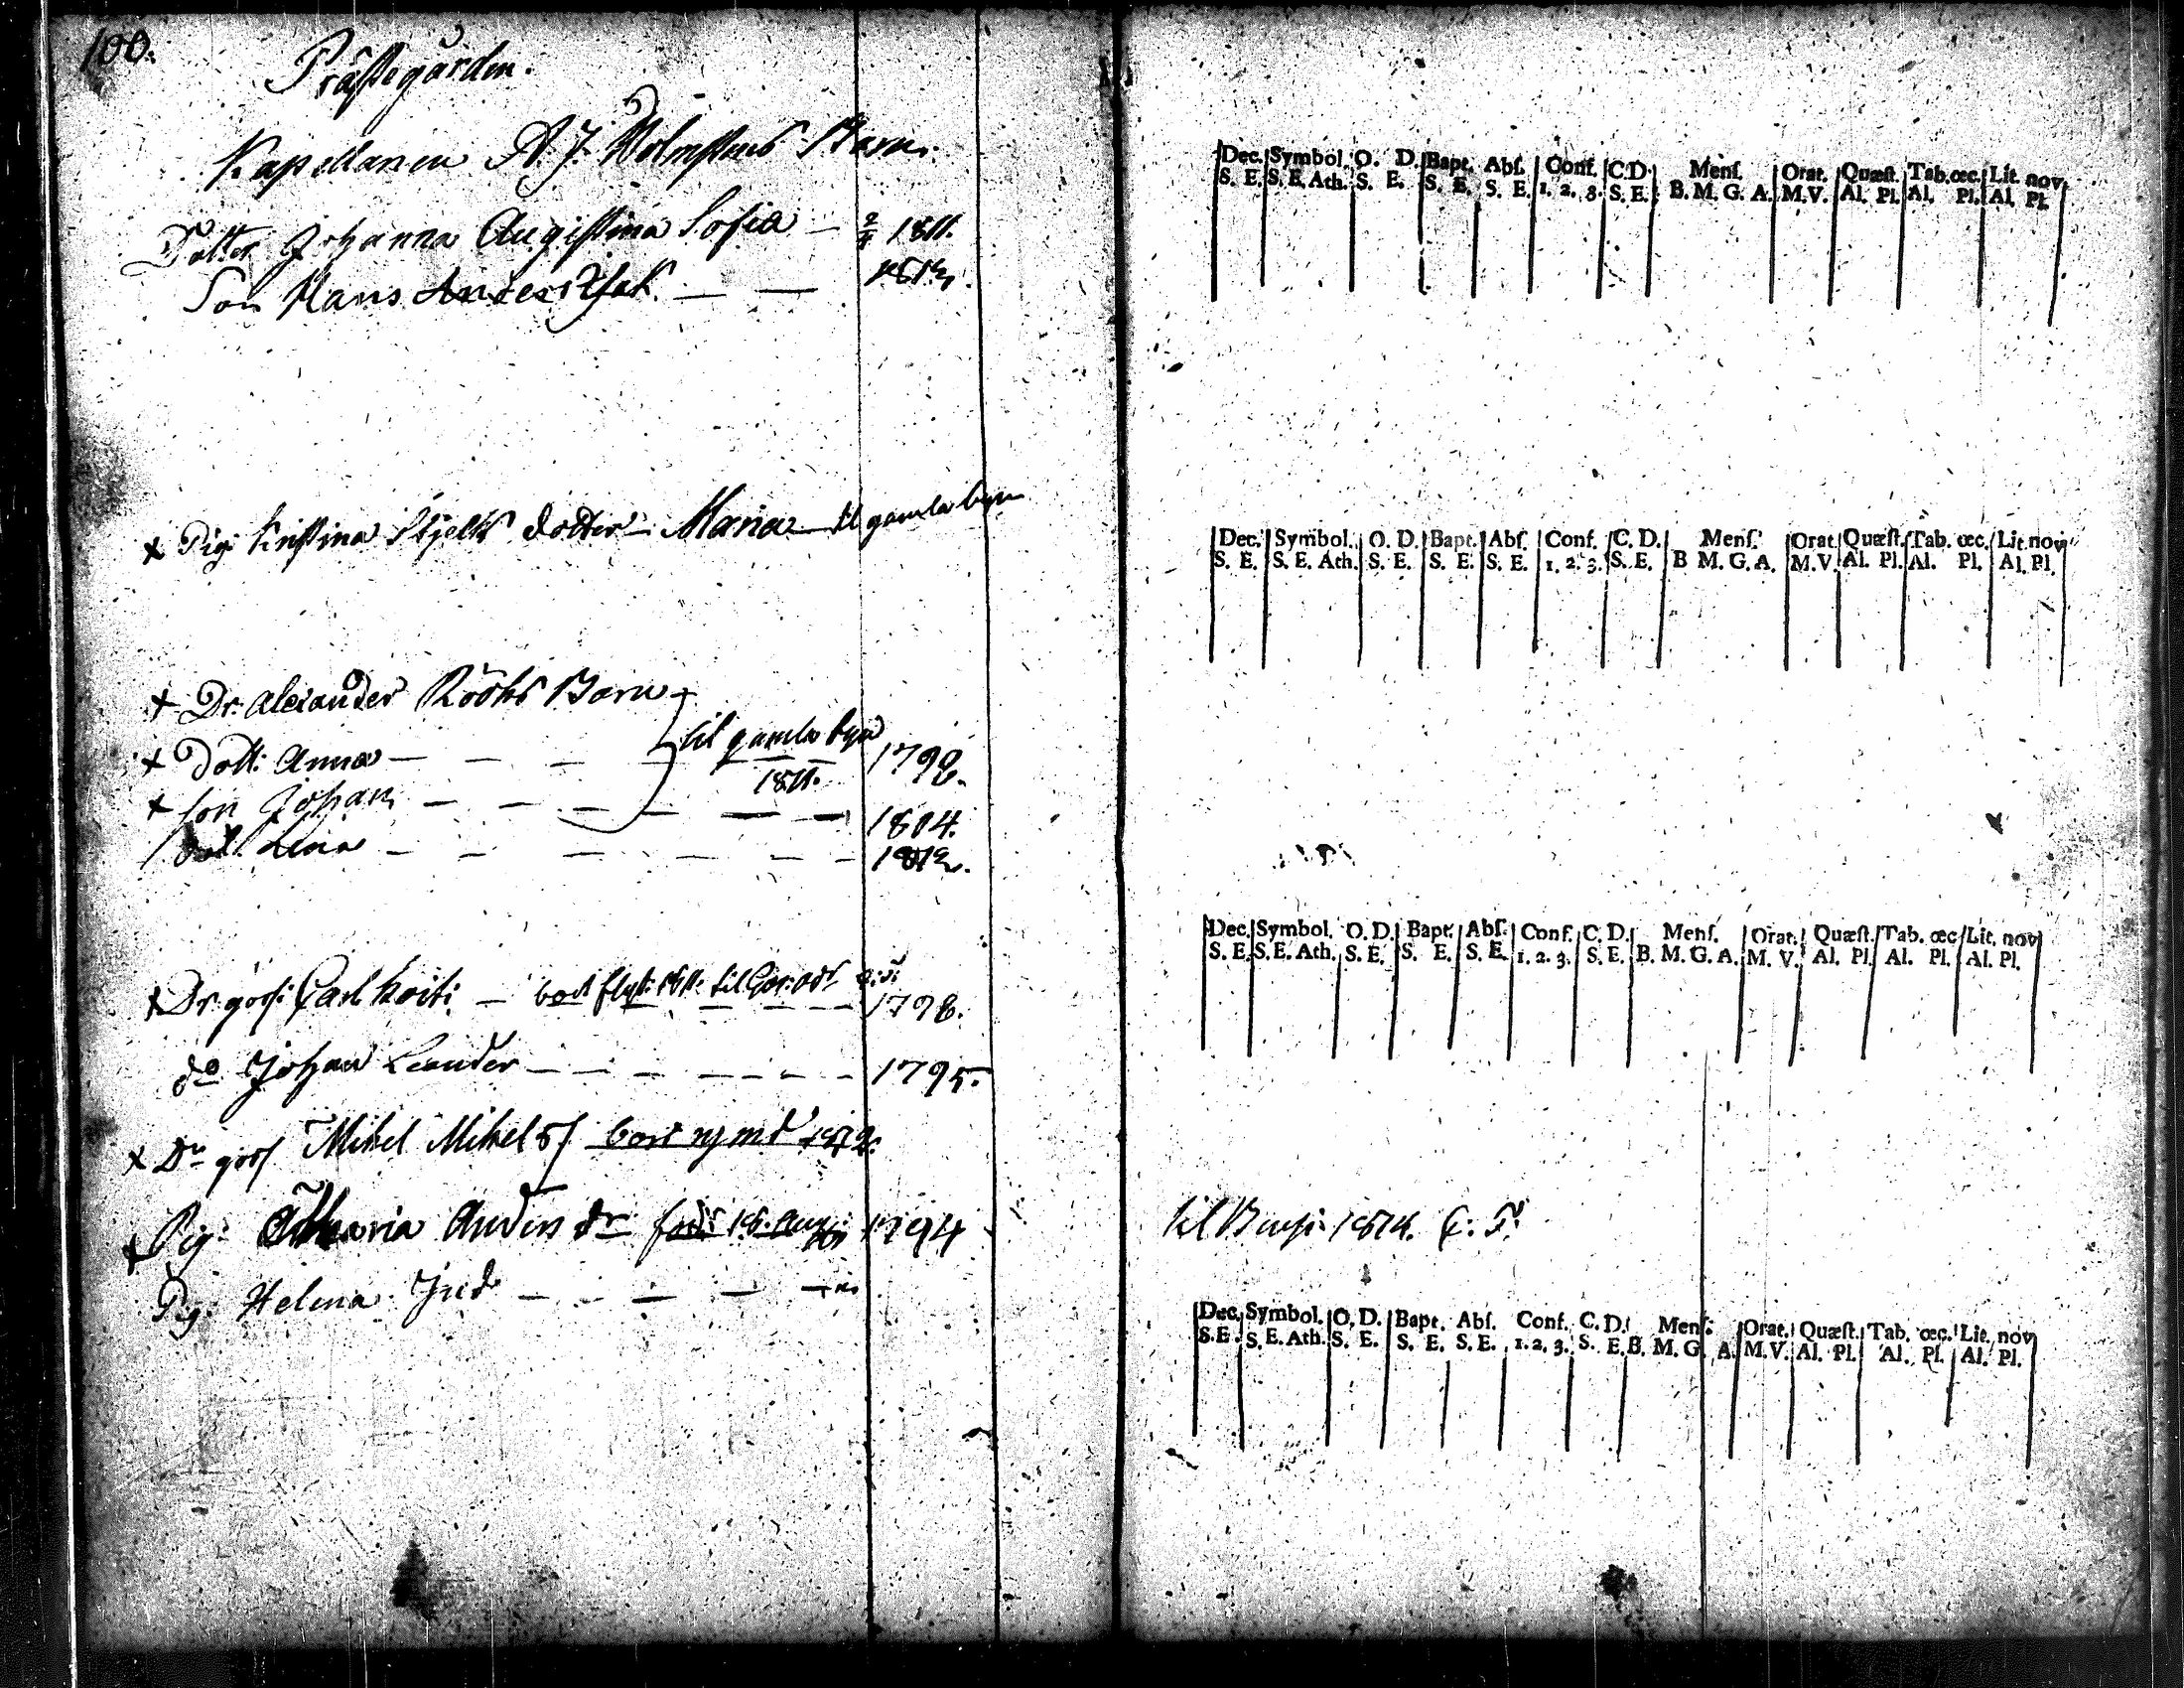 100.
Prästegården.
Kapellanen A. J. Holmstens Barn.
Dotter Johanna Augustina Sofia — 1811.
Son Hans Anders Isak — — 1812.
x Pig. Kristina Skjelts dotter — Maria — til gamla byn
x Dr. Alexander Rööks Barn
x Dott: Anna — — — til gamla byn 1798.
1811.
x Son Johan — — — — — — 1804.
Dott. Lena — — — — — — 1812.
x Dr. goss: Carl — bort flytt: 1811: til 1798.
do Johan Leander — — — — — — 1795.
x Dr goss Mikel Mikels: bort rymd 1812.
x Pig: Maria Anders dr född 18. Aug: 1794
til 1814.
Pig. Helena — — — —
Dec. Symbol. O. D. Bapt. Abſ. Conf. C.D. Menſ. Orat. Quæſt. Tab. œc. Lit. nov.
S. E. S. E. Ath. S. E. S. E. S. E. 1. 2. 3. S. E. B. M. G. A. M. V. Al. Pl. Al. Pl. Al. Pl.
Dec. Symbol. O. D. Bapt. Abſ. Conf. C. D. Menſ. Orat. Quæſt. Tab. œc. Lit. nov
S. E. S. E. Ath. S. E. S. E. S. E. 1. 2. 3. S. E. B M. G. A. M. V. Al. Pl. Al. Pl. Al. Pl.
Dec. Symbol. O. D. Bapt. Abſ. Conf. C. D. Menſ. Orat. Quæſt. Tab. œc Lit. nov
S. E. S. E. Ath. S. E. S. E. S. E. 1. 2. 3. S. E. B. M. G. A. M. V. Al. Pl. Al. Pl. Al. Pl.
Dec. Symbol. O. D. Bapt. Abſ. Conf. C. D. Menſ. Orat. Quæſt. Tab. œc. Lit. nov
S. E. S. E. Ath. S. E. S. E. S. E. 1. 2. 3. S. E. B. M. G. A. M. V. Al. Pl. Al. Pl. Al. Pl.